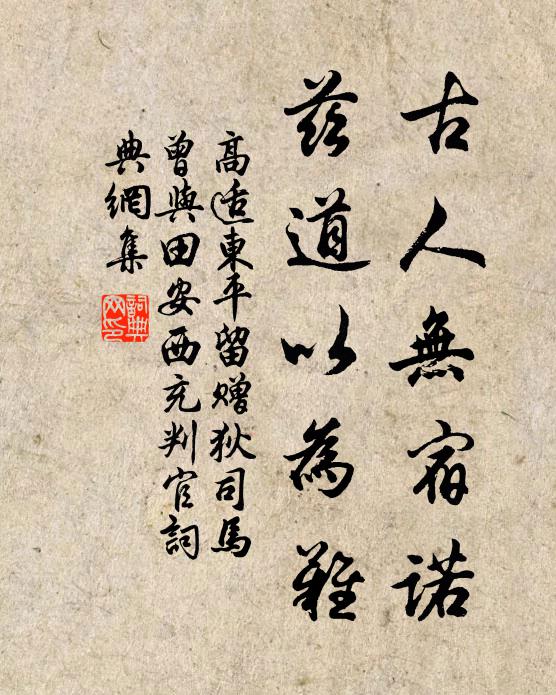 古人無宿諾
茲道以為難
高适東平留贈狄司馬
曾與田安西充判官詞
典網集
詞典
网印